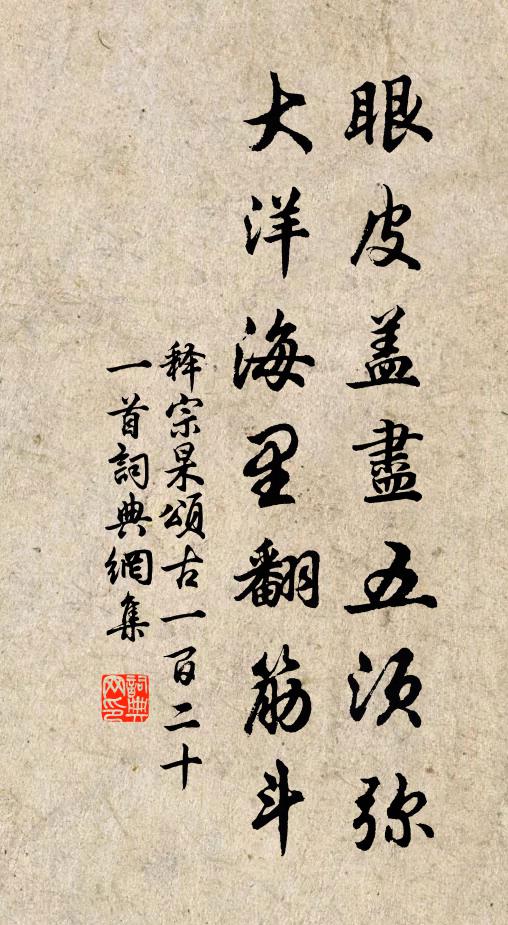 眼皮盖盡五須弥
大洋海里翻筋斗
释宗杲頌古一百二十
一首詞典網集
詞典
网印